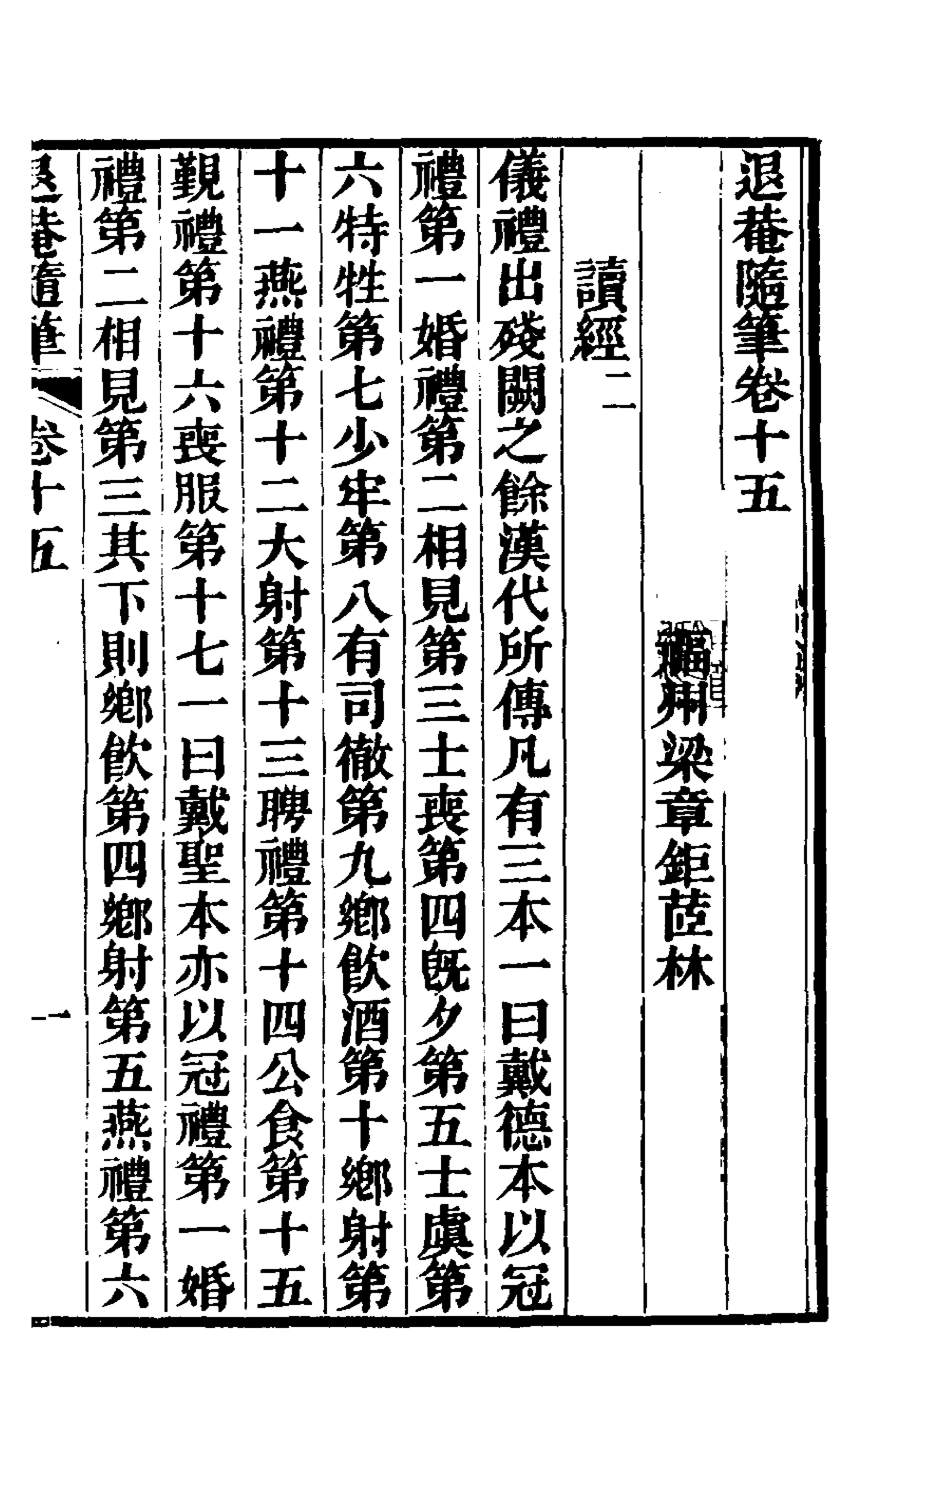 退菴隨筆卷十五
福州梁章鉅茝林
讀經二
儀禮出殘闕之餘漢代所傳凡有三本一曰戴德本以冠
禮第一婚禮第二相見第三士喪第四旣夕第五士虞第
六特牲第七少牢第八有司徹第九鄉飲酒第十鄉射第
十一燕禮第十二大射第十三聘禮第十四公食第十五
覲禮第十六喪服第十七一曰戴聖本亦以冠禮第一婚
禮第二相見第三其下則鄉飲第四鄉射第五燕禮第六
退菴隨筆 卷十五 一